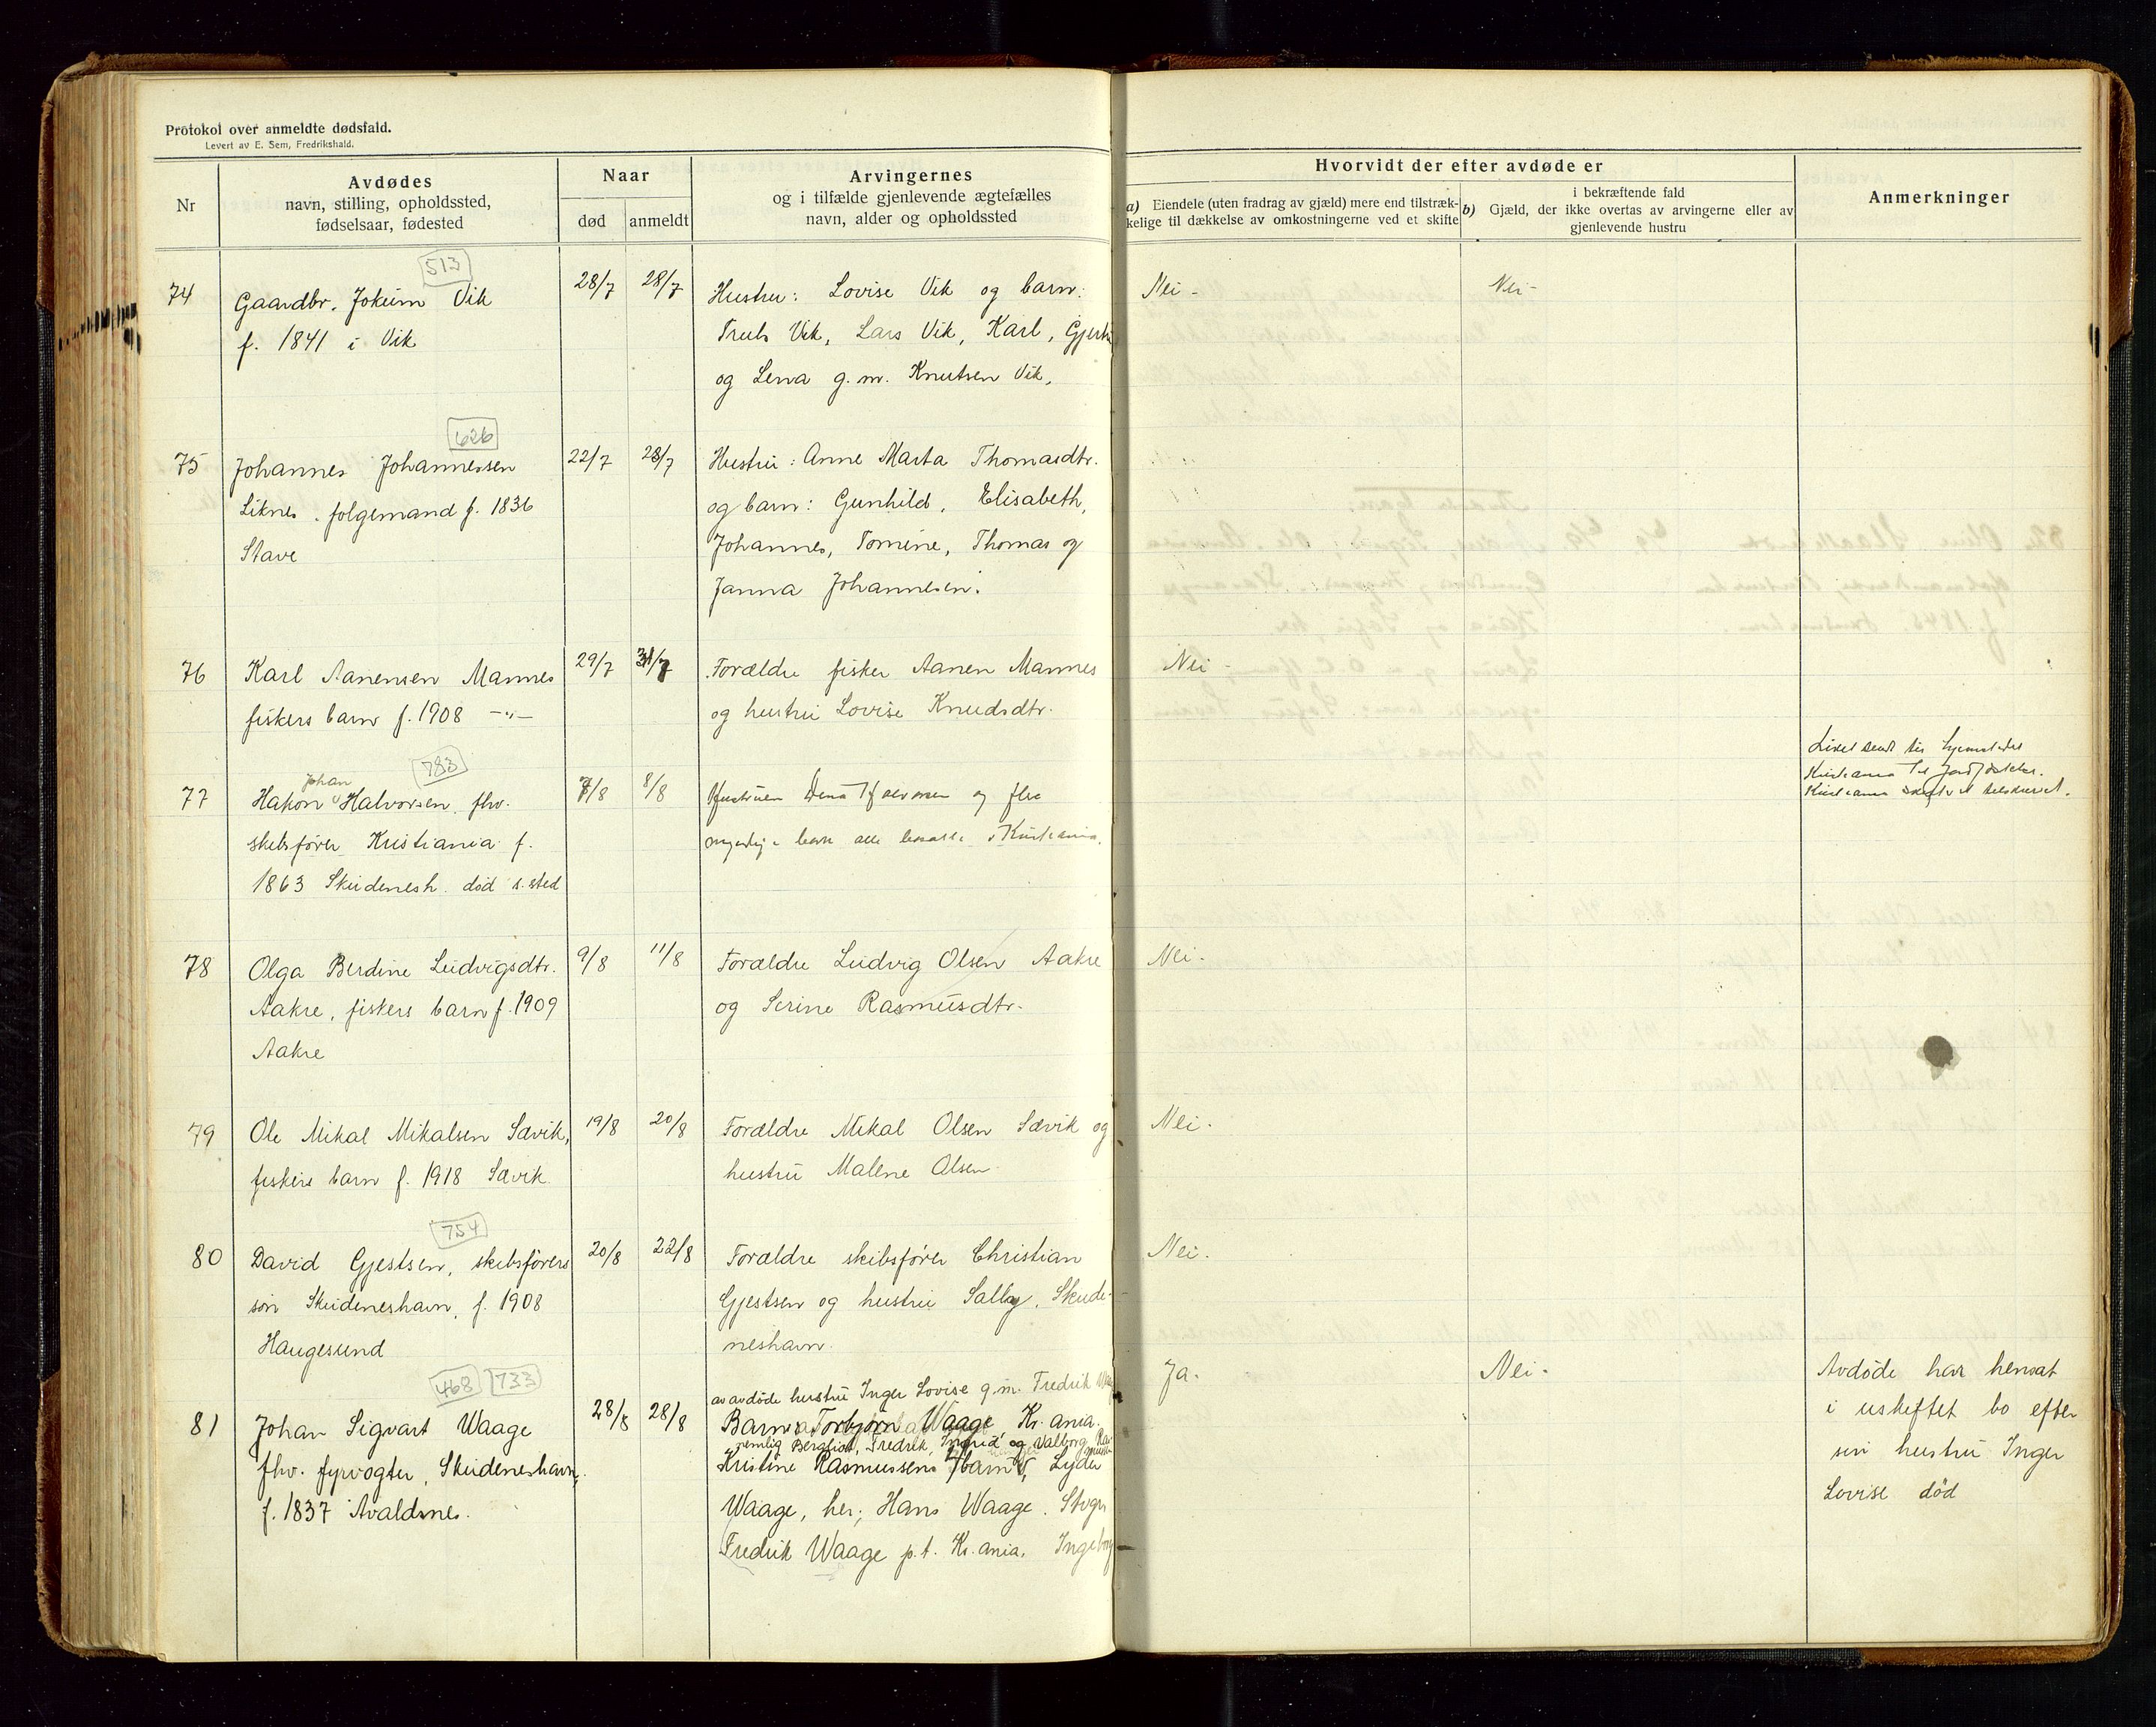 Protokol over anmeldte dødsfald.
Levert av E. Sem, Fredrikshald.
Nr
Avdødes
navn, stilling, opholdssted,
fødselsaar, fødested
Naar
død
anmeldt
Arvingernes
og i tilfælde gjenlevende ægtefælles
navn, alder og opholdssted
Hvorvidt der efter avdøde er
a) Eiendele (uten fradrag av gjæld) mere end tilstræk-
kelige til dækkelse av omkostningerne ved et skifte
i bekræftende fald
b) Gjæld, der ikke overtas av arvingerne eller av
gjenlevende hustru
Anmerkninger
513
74
Gaardbr. Jokum Vik
f. 1841 i Vik
28/7
28/7
Hustru: Lovise Vik og barn:
Truls Vik, Lars Vik, Karl,
og Lena g.m. Knutsen Vik,
Nei -
Nei -
626
75
Johannes Johannessen
Liknes, følgemand f. 1836
Stave
22/7
28/7
Hustru: Anne Marta Thomasdtr.
og barn: Gunhild, Elisabeth,
Johannes, Tomine, Thomas og
Janna Johannesen.
76
Karl Aanensen Mannes
fiskers barn f. 1908 -"-
29/7
31/7
Forældre fisker Aanen Mannes
og hustru Lovise Knudsdtr.
Nei -
783
77
Johan
Hakon Halvorsen, fhv.
skibsfører Kristiania f.
1863 Skudenesh. død s. sted
7/8
8/8
Hustruen Dena Halvorsen og flere
myndige barn alle bosatte i Kristiania.
Liket sendt til hjemstedet
Kristiania
Kristiania
78
Olga Berdine Ludvigsdtr.
Aakre, fiskers barn f. 1909
Aakre
9/8
11/8
Forældre Ludvig Olsen Aakre
og Serine Rasmusdtr.
Nei -
79
Ole Mikal Mikalsen Sævik,
fiskers barn f. 1918 Sævik.
19/8
20/8
Forældre Mikal Olsen Sævik og
hustru Malene Olsen
Nei -
754
80
David Gjestsen, skibsførers
søn Skudeneshavn, f. 1908
Haugesund
20/8
22/8
Forældre skibsfører Christian
Gjestsen og hustru Sally, Skude-
neshavn.
Nei.
468 733
81
Johan Sigvart Waage
fhv. fyrvogter, Skudeneshavn,
f. 1837 Avaldsnes.
28/8
28/8
av avdøde hustru Inger Lovise g.m. Fredrik
Barn: Torbjørn Waage Kr.ania.
nemlig Bergliot, Fredrik, Ingrid og Valborg
Kristine Rasmussens barn, Lyder
Waage, her; Hans Waage. Stvgr
Fredrik Waage p.t. Kr.ania. Ingeborg
Ja.
Nei -
Avdøde har hensat
i uskiftet bo efter
sin hustru Inger
Lovise død